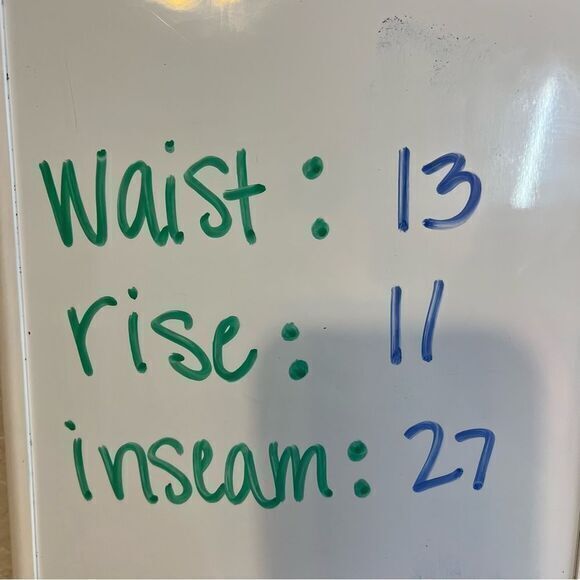 waist: 13
rise: 11
inseam: 27